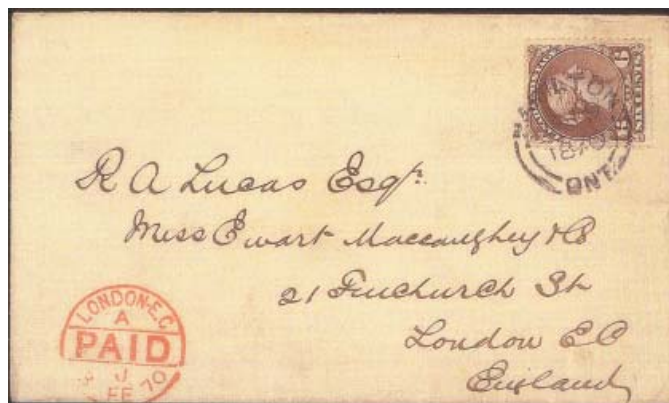 SIX CENTS
1870
ONT
R A Lucas Esqr.
Mess Ewart Maccaughey & Co
21 Finchurch St
London E C
England
LONDON-E.C
A
PAID
FE 70